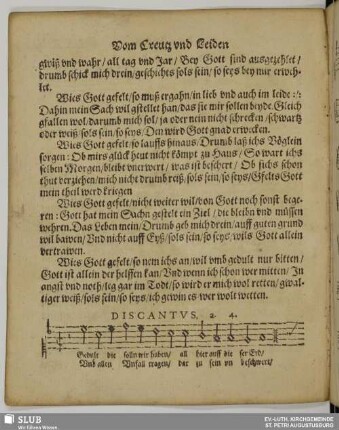 Vom Creutz vnd Leiden
gwiß vnd wahr / all tag vnd Jar / Bey Gott sind ausgezehlet /
drumb schick mich drein / geschichts sols sein / so seys bey mir erweh-
let.
Wies Gott gefelt / so muß ergahn / in lieb vnd auch im leide :/:
Dahin mein Sach wil gstellet han / das sie mir sollen beyde. Gleich
gfallen wol / darumb mich sol / ja oder nein nicht schrecken / schwartz
oder weiß / sols sein / so seys / Der wird Gott gnad erwecken.
Wies Gott gefelt / so lauffs hinaus / Drumb laß ichs Vöglein
sorgen : Ob mirs glück heut nicht kömpt zu Haus / So wart ichs
selben Morgen / bleibt vnerwert / was ist beschert / Ob sichs schon
thut verziehen / mich nicht drumb reiß / sols sein / so seys / Gfelts Gott
mein theil werd kriegen
Wies Gott gefelt / nicht weiter wil / von Gott noch sonst bege-
ren : Gott hat mein Sachn gestelt ein Ziel / die bleibn vnd müssen
wehren. Das Leben mein / Drumb geb mich drein / auff guten grund
wil bawen / Vnd nicht auff Eyß / sols sein / so seys / wils Gott allein
vertrawen.
Wies Gott gefelt / so nem ichs an / wil vmb gedult nur bitten /
Gott ist allein der helffen kan / Vnd wenn ich schon wer mitten / In
angst vnd noth / leg gar im Todt / so wird er mich wol retten / gwal-
tiger weiß / sols sein / so seys / ich gewin es wer wolt wetten.
DISCANTVS, 2. 4.
Gedult die solln wir haben / all hier auff die ser Erd /
Vnd allen Vnfall tragen / dar zu sein vn beschwert /
SLUB
Wir führen Wissen.
EV.-LUTH. KIRCHGEMEINDE
ST. PETRI AUGUSTUSBURG